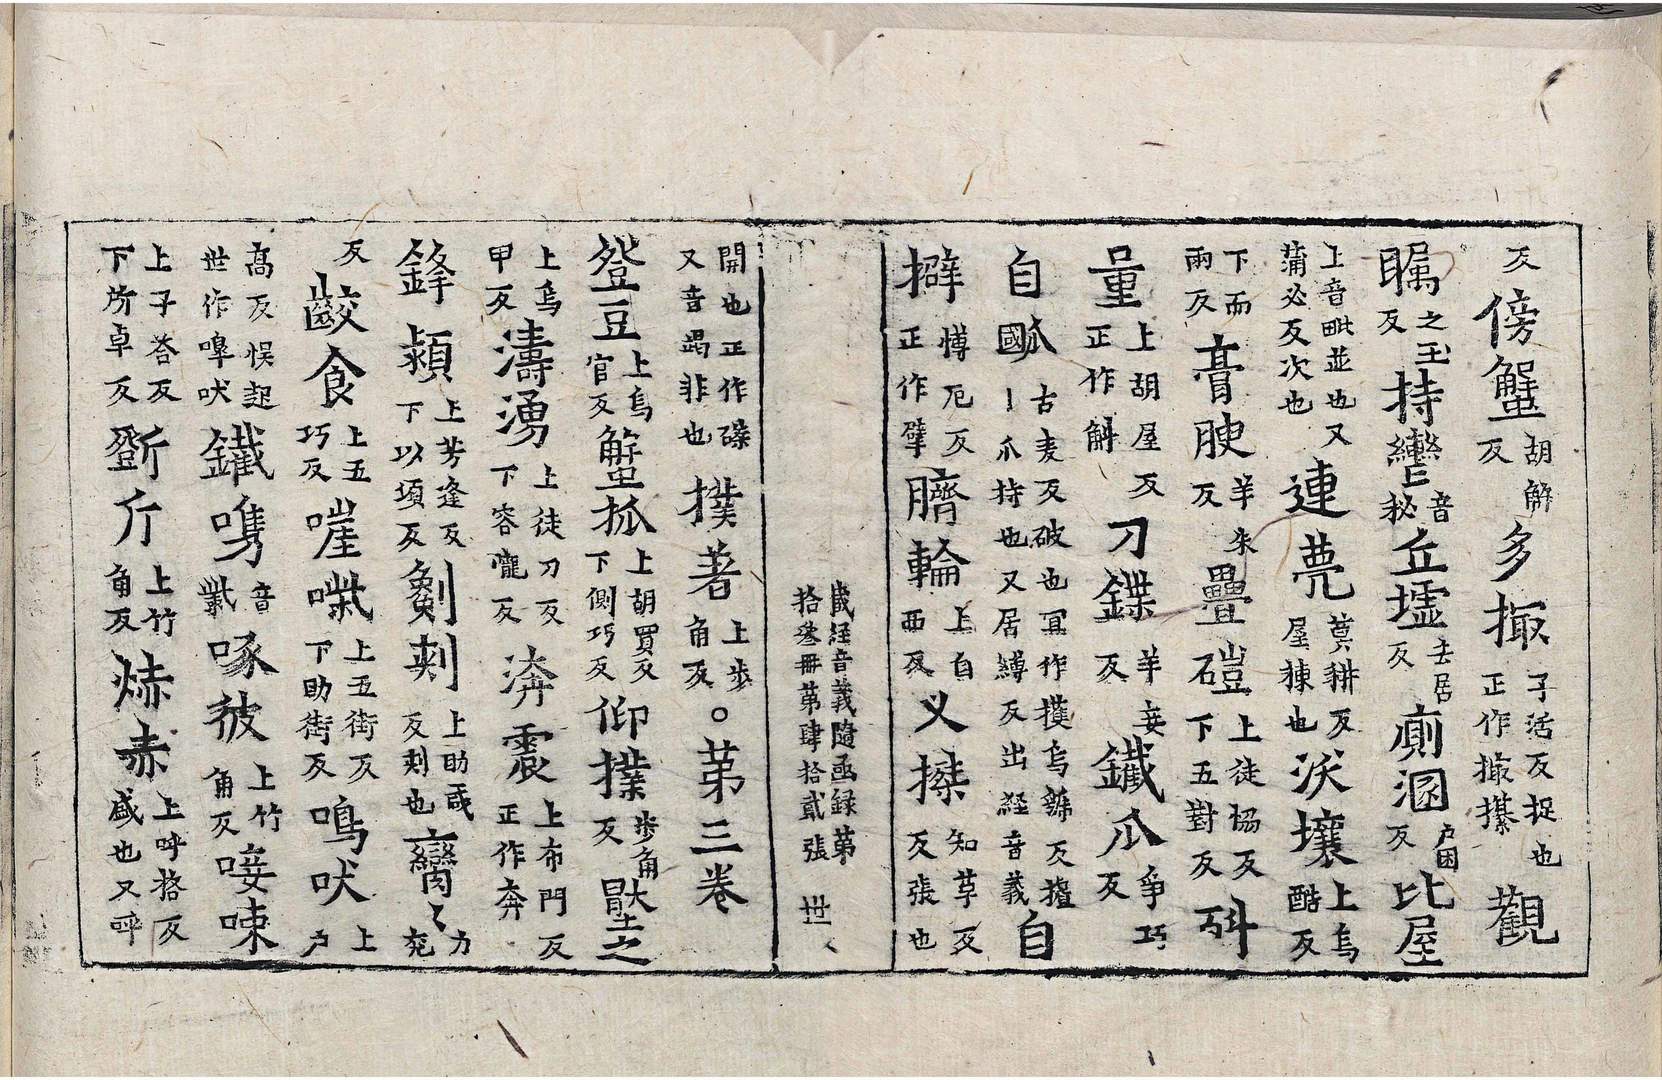 反傍蟹胡解反多掫子活反捉也正作撮㩫觀
矚之玉反持轡音秘丘墟去居反廁溷户困反比屋
上音毗並也又蒲必反次也連甍莫耕反屋棟也沃壤上烏酷反
下而兩反膏腴羊朱反疊磑上徒協反下五對反㪷
量上胡屋反正作斛刀鍱羊妾反鐵爪爭巧反
自𤔩古麦反破也冝作擭烏虢反擭國〡爪持也又居縛反出経音義自
擗博厄反正作擘臍輪上自西反义搩知革反反張也
歲経音義隨函録苐拾叄冊苐肆拾貳張 世
開也正作磔又音竭非也撲著上步角反。苐三卷
豋豆上烏官反蟹抓上胡買反下側巧反仰撲步角反
上烏甲反濤湧上徒刀反下容寵反渀震上布門反正作奔
鋒㯋上芳逢反下以頃反劖刺上助咸反反刺也臠々力兖
反齩食上五巧反啀㗼上五街反下助街反鳴吠上户
髙反悮起世作嘷吠鐵㗱音觜啄彼上竹角反唼㖨
上子荅反下所卓反斵斤上竹角反㷮赤上呼格反盛也又呼